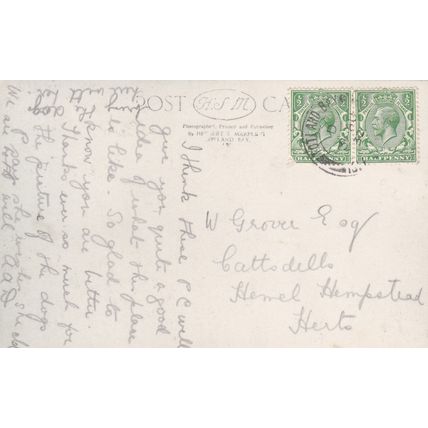 POST CA
H.S.M
Photographed, Printed and Published
by
TOTLAND BAY
HALFPENNY
HALFPENNY
I think these P.C. will
give you quite a good
idea of what this place
is like. So glad to
know you are better.
Thanks ever so much for
the picture of the dogs
P. says
We are both well A.A.D.
W Grover Esq
Cattsdells
Hemel Hempstead
Herts